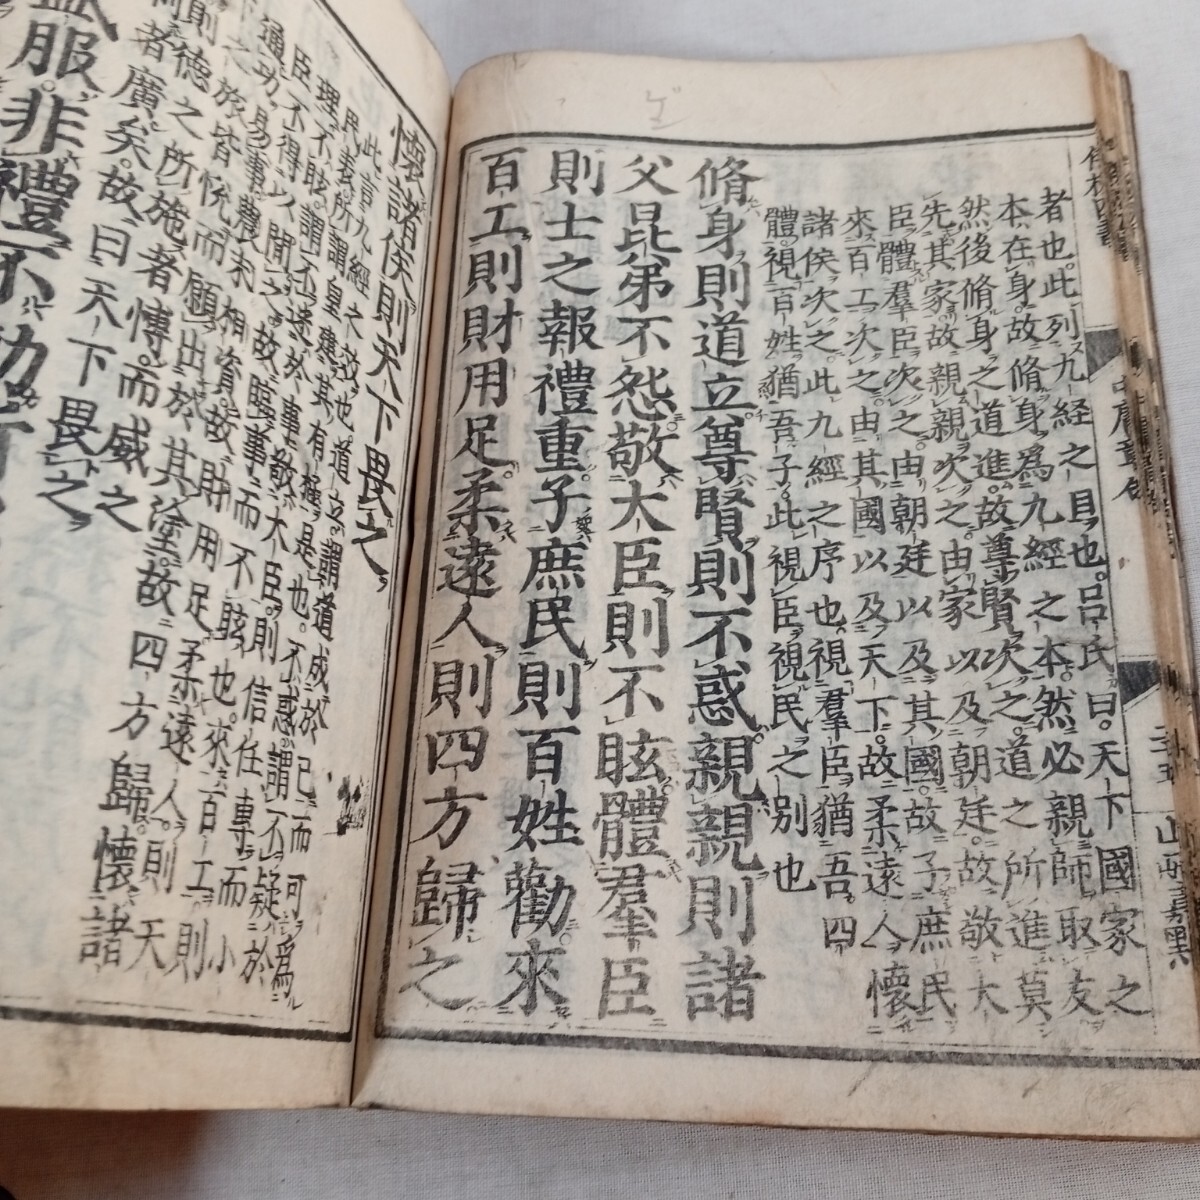 者也。此列九經之目也。呂氏曰。天下國家之
本在身。故脩身爲九經之本。然必親師取友
然後脩身之道進。故尊賢次之。道之所進莫
先其家。故親親次之。由家以及朝廷。故敬大
臣體羣臣次之。由朝廷以及其國。故子庶民
來百工次之。由其國以及天下。故柔遠人懷
諸侯次之。此九經之序也。視羣臣猶吾四
體。視百姓猶吾子。此視臣視民之別也
脩身則道立。尊賢則不惑。親親則諸
父昆弟不怨。敬大臣則不眩。體羣臣
則士之報禮重。子庶民則百姓勸。來
百工則財用足。柔遠人則四方歸之
懷諸侯則天下畏之
此言九經之效也。道立。謂道成於己而可爲
民表。所謂皇建其有極是也。不惑。謂不疑於
理。不眩。謂不迷於事。敬大臣則信任專。而小
臣不得以間之。故臨事而不眩也。來百工則
通功易事。農末相資。故財用足。柔遠人。則天
下之旅皆悅而願出於其塗。故四方歸。懷諸
侯則德之所施者博。而威之
所制者廣矣。故曰天下畏之
盛服。非禮不動。所
中庸章句
山崎嘉點